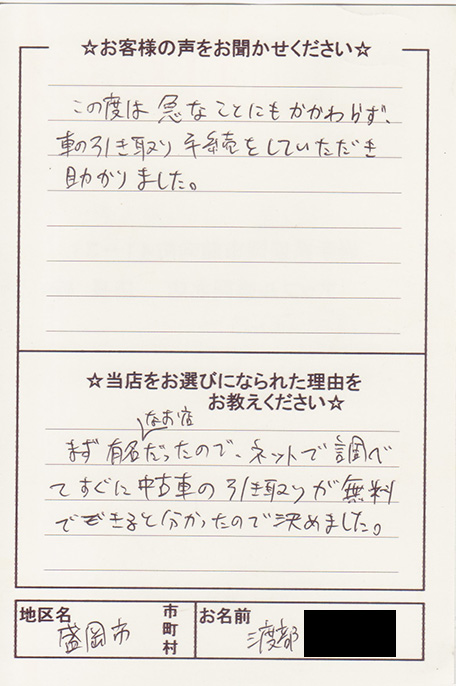 ☆お客様の声をお聞かせください☆
この度は急なことにもかかわらず、
車の引き取り手続をしていただき
助かりました。
☆当店をお選びになられた理由を
お教えください☆
なお店
まず有名だったので、ネットで調べ
てすぐに中古車の引き取りが無料
でできると分かったので決めました。
地区名 盛岡市 市町村
お名前 渡部